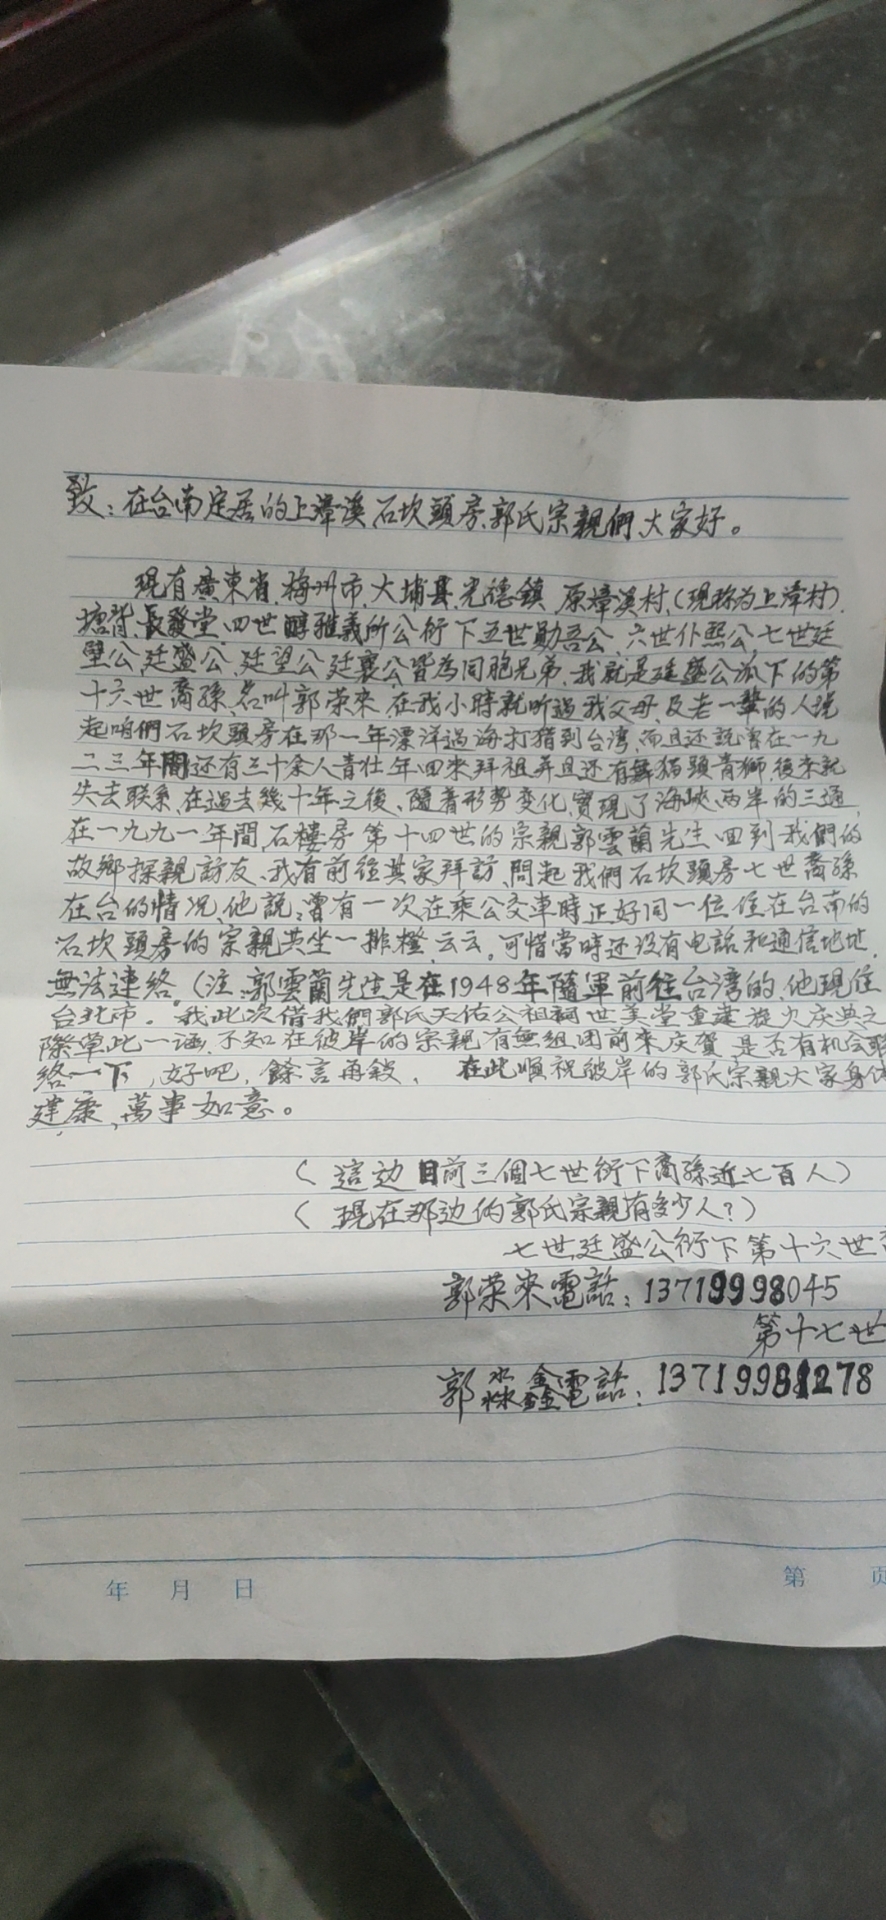 致：在台南定居的上漳溪石坎頭房郭氏宗親們大家好。
現有廣東省梅州市大埔县光德鎮原漳溪村,(现称为上漳村)
塘背長發堂四世醇雅義所公衍下五世勛吾公、六世仆熙公七世廷
壁公廷盛公廷望公廷襄公皆為同胞兄弟、我就是廷盛公派下的第
十六世裔孫名叫郭荣來在我小時就听過我父母及老一輩的人说
起咱們石坎頭房在那一年漂洋過海打猎到台湾而且还說曾在一九
二三年間还有三十余人青壮年回來拜祖并且还有舞猫頭青獅後來就
失去联系在過去幾十年之後、隨着形势变化實現了海峽两岸的三通
在一九九一年間石樓房第十四世的宗親郭雲蘭先生回到我們的
故鄉探親訪友、我有前往其家拜訪問起我們石坎頭房七世裔孫
在台的情况他説:曾有一次在乘公交車時正好同一位住在台南的
石坎頭房的宗親共坐一排櫈云云。可惜當時还没有电話和通信地址
無法連络。(注:郭雲蘭先生是在1948年隨軍前往台湾的、他現住
台北市。我此次借我們郭氏天佑公祖祠世美堂重建旋火庆典之
際草此一函不知在彼岸的宗親有無組团前来庆賀是否有机会联
络一下,好吧,餘言再敍、在此順祝彼岸的郭氏宗親大家身体
建康,萬事如意。
(這边目前三個七世衍下裔孫近七百人)
(現在那边的郭氏宗親有多少人?)
七世廷盛公衍下第十六世
郭荣來電話:13719998045
第十七世
郭淼鑫電話:13719981278
年 月 日 第 页